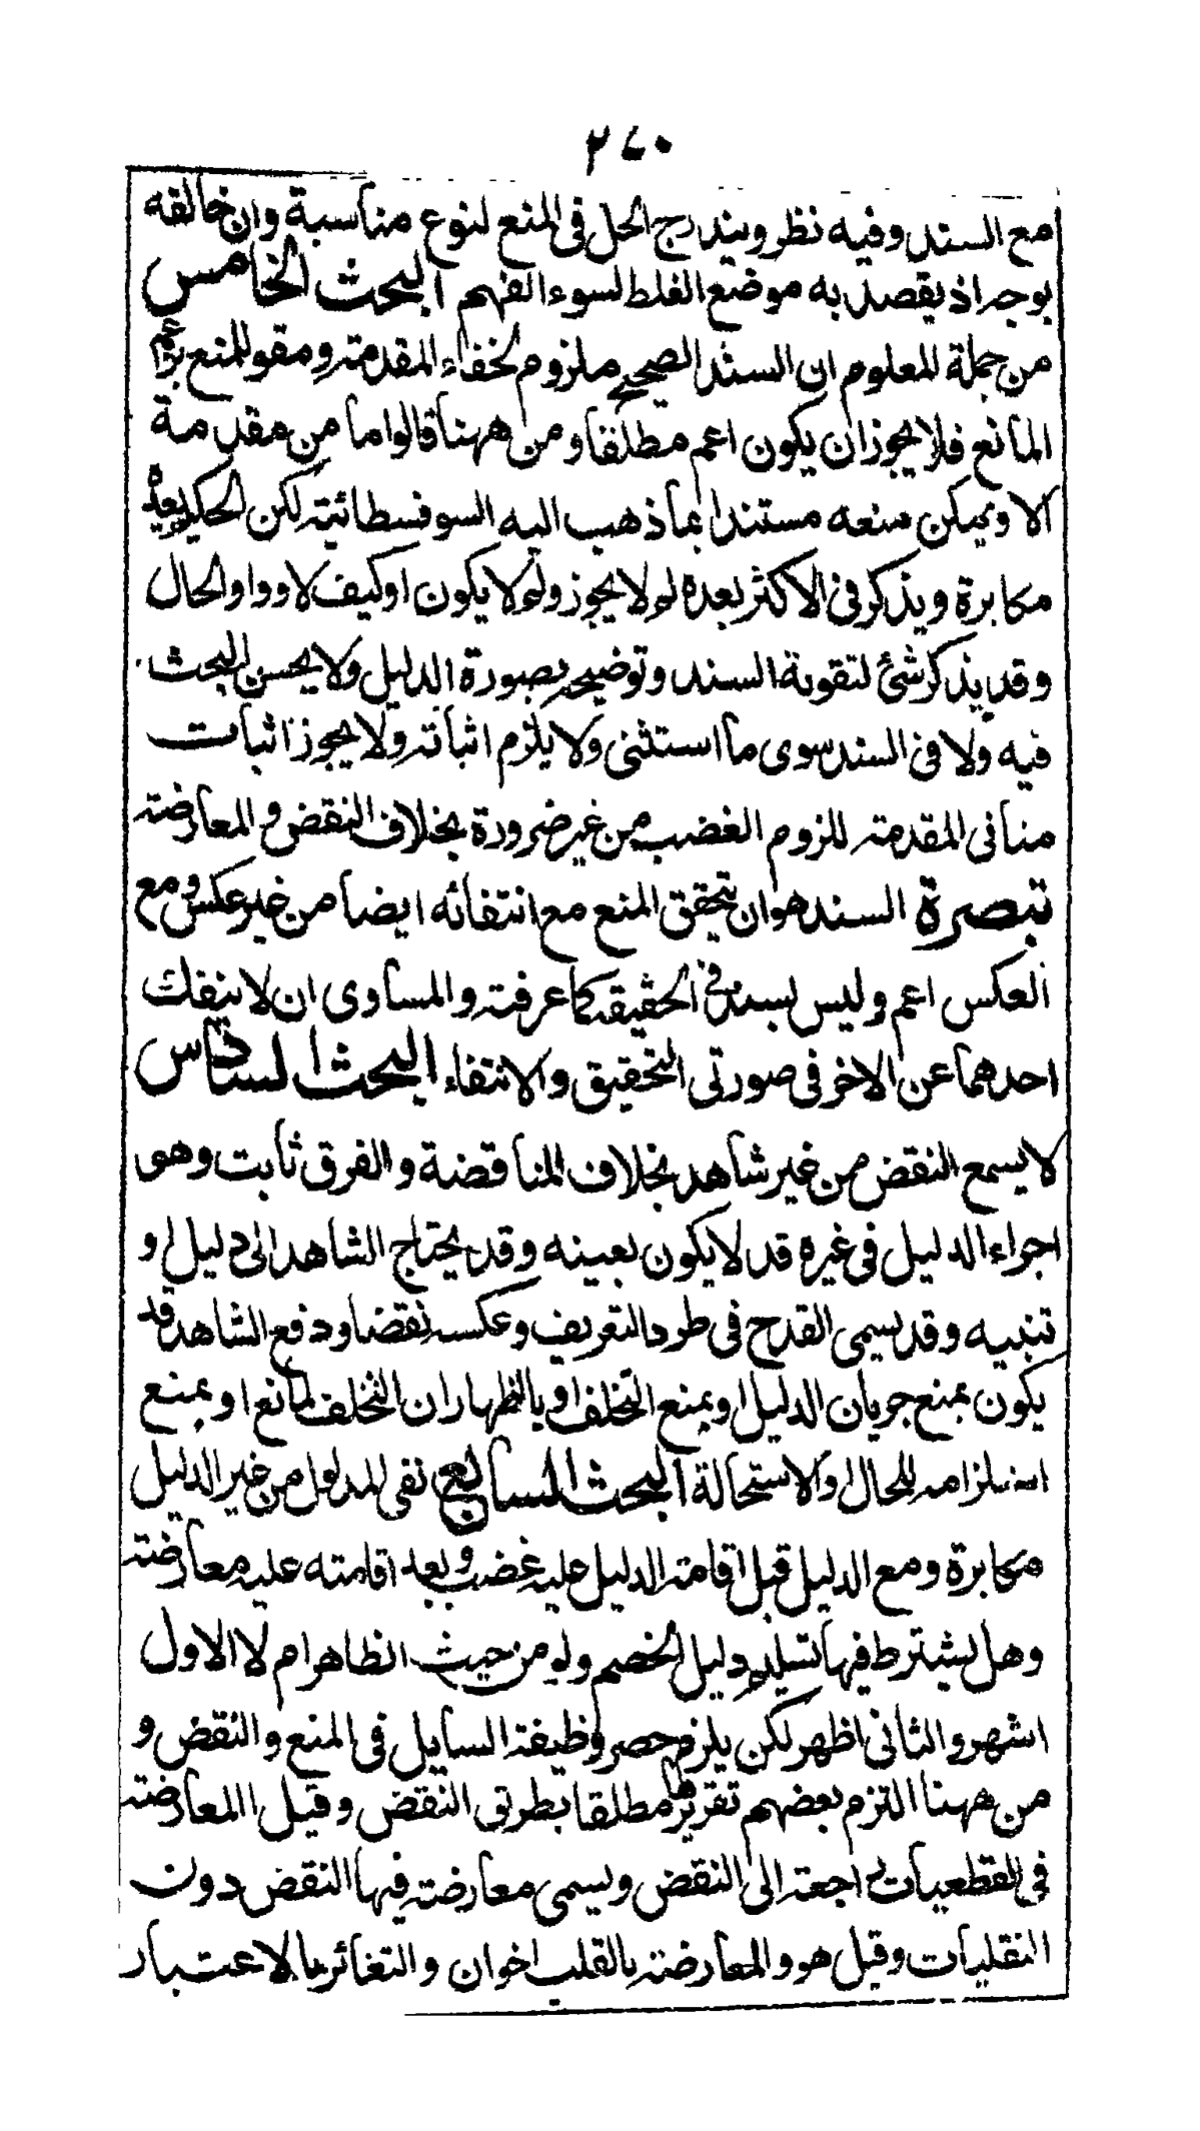 ٢٧٠
مع السند وفيه نظر ويندرج الحل فى المنع لنوع مناسبة وان خالفه
بوجه اذ يقصد به موضع الغلط لسوء الفهم البحث الخامس
من جملة المعلوم ان السند الصحيح ملزوم لخفاء المقدمة ومقو للمنع بزعم
المانع فلا يجوز ان يكون اعم مطلقا ومن ههنا قالوا ما من مقدمة
الا ويمكن منعه مستندا بما ذهب اليه السوفسطائية لكن الحكيم يعده
مكابرة ويذكر فى الاكثر بعده لم لا يجوز ولم لا يكون او كيف لا وواو الحال
وقد يذكر شئ لتقوية السند وتوضيحه بصورة الدليل ولا يحسن البحث
فيه ولا فى السند سوى ما استثنى ولا يلزم اثباته ولا يجوز اثبات
منافى المقدمة للزوم الغضب من غير ضرورة بخلاف النقض والمعارضة
تبصرة السند هو ان يتحقق المنع مع انتفائه ايضا من غير عكس ومع
العكس اعم وليس بسند فى الحقيقة كما عرفته والمساوى ان لا ينفك
احدهما عن الاخر فى صورتى التحقيق والانتفاء البحث السادس
لا يسمع النقض من غير شاهد بخلاف المناقضة والفرق ثابت وهو
اجراء الدليل فى غيره قد لا يكون بعينه وقد يحتاج الشاهد الى دليل او
تنبيه وقد يسمى القدح فى طرد التعريف وعكسه نقضا ودفع الشاهد قد
يكون بمنع جريان الدليل او بمنع التخلف او باظهار ان التخلف لمانع او بمنع
استلزامه للمحال او الاستحالة البحث السابع نفى المدلول من غير الدليل
مكابرة ومع الدليل قبل اقامة الدليل عليه غضب وبعد اقامته عليه معارضة
وهل يشترط فيها تسليم دليل الخصم ولو من حيث الظاهر ام لا الاول
اشهر والثانى اظهر لكن يلزم حصر وظيفة السايل فى المنع والنقض و
من ههنا التزم بعضهم تقريرها مطلقا بطريق النقض وقيل المعارضة
فى القطعيات راجعة الى النقض ويسمى معارضة فيها النقض دون
النقليات وقيل هو والمعارضة بالقلب اخوان والتغائر بالاعتبار